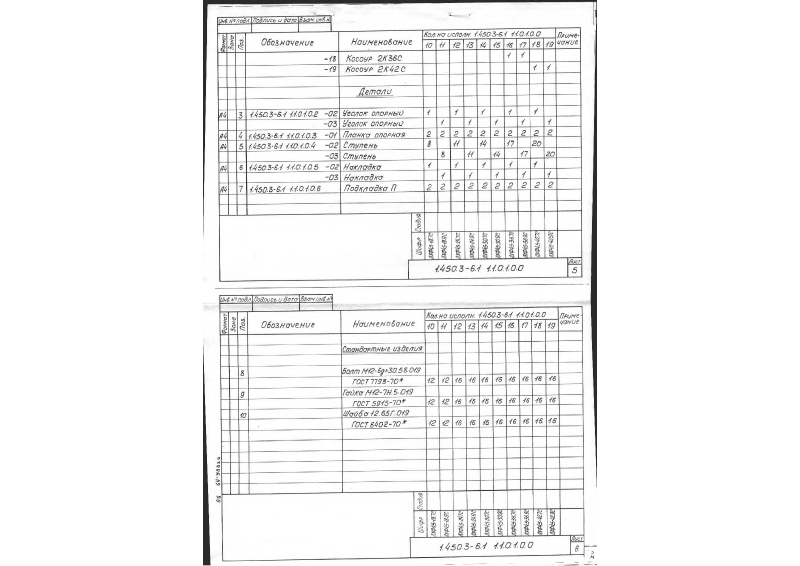 Инв.№ подл. Подпись и дата Взам.инв.№
Формат Зона Поз. Обозначение Наименование Кол. на исполн. 1.450.3-6.1 1.1.0.1.0.0 Приме-
чание
10 11 12 13 14 15 16 17 18 19
-18 Косоур 2К36С 1 1
-19 Косоур 2К42С 1 1
Детали
А4 3 1.450.3-6.1 1.1.0.1.0.2 -02 Уголок опорный 1 1 1 1 1
-03 Уголок опорный 1 1 1 1 1
А4 4 1.450.3-6.1 1.1.0.1.0.3 -01 Планка опорная 2 2 2 2 2 2 2 2 2 2
А4 5 1.450.3-6.1 1.1.0.1.0.4 -02 Ступень 8 11 14 17 20
-03 Ступень 8 11 14 17 20
А4 6 1.450.3-6.1 1.1.0.1.0.5 -02 Накладка 1 1 1 1 1
-03 Накладка 1 1 1 1 1
А4 7 1.450.3-6.1 1.1.0.1.0.6 Подкладка П 2 2 2 2 2 2 2 2 2 2
Стадия
Шифр
1.450.3-6.1 1.1.0.1.0.0
Лист
5
Инв.№ подл. Подпись и дата Взам.инв.№
Формат Зона Поз. Обозначение Наименование Кол. на исполн. 1.450.3-6.1 1.1.0.1.0.0 Приме-
чание
10 11 12 13 14 15 16 17 18 19
Стандартные изделия
8 Болт М12-6g×30.56.019
ГОСТ 7798-70* 12 12 16 16 16 16 16 16 16 16
9 Гайка М12-7Н.5.019
ГОСТ 5915-70* 12 12 16 16 16 16 16 16 16 16
10 Шайба 12.65Г.019
ГОСТ 6402-70* 12 12 16 16 16 16 16 16 16 16
Стадия
Шифр
1.450.3-6.1 1.1.0.1.0.0
Лист
6